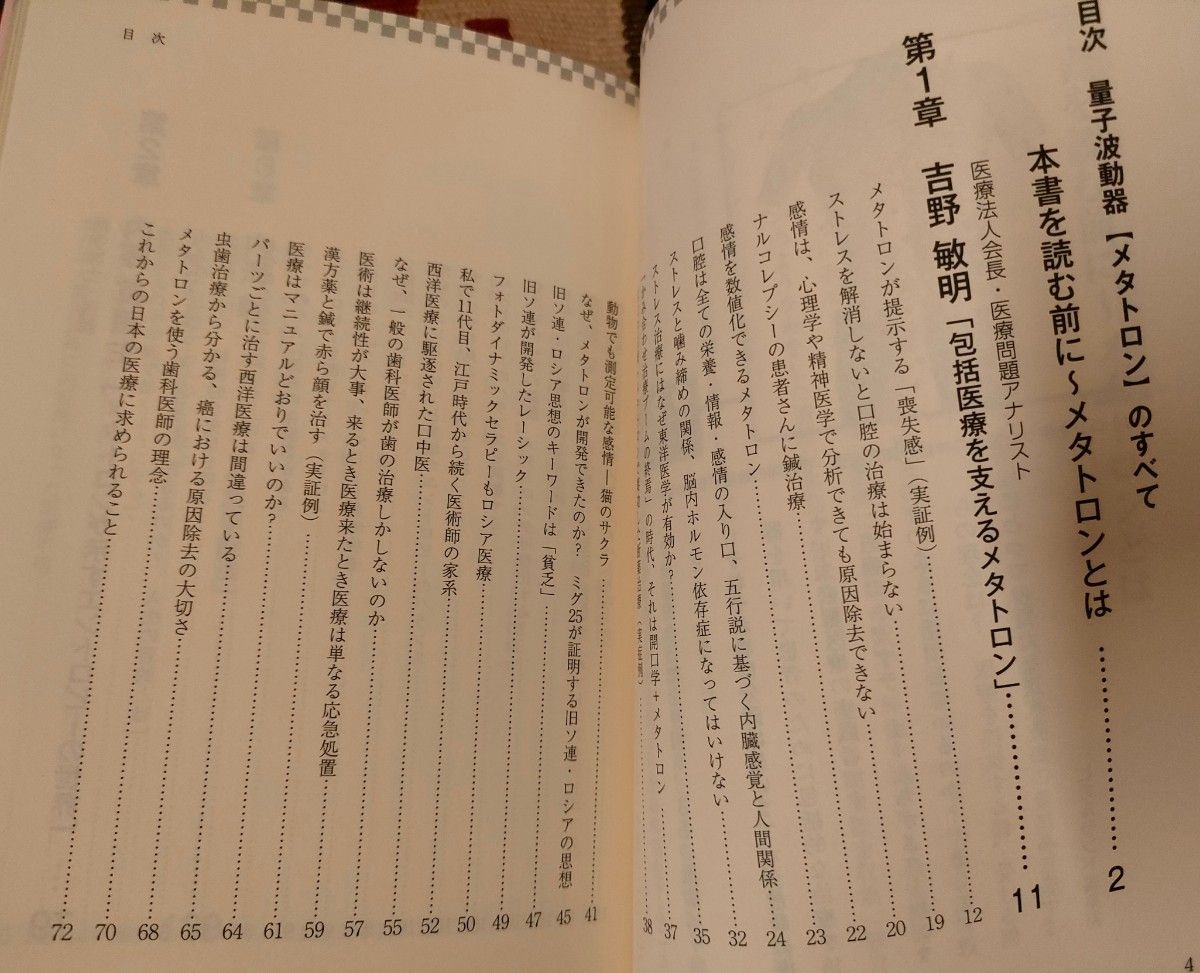 目次 量子波動器【メタトロン】のすべて
本書を読む前に～メタトロンとは…………2
第1章 吉野 敏明「包括医療を支えるメタトロン」…………11
医療法人会長・医療問題アナリスト
メタトロンが提示する「喪失感」(実証例)…………12
ストレスを解消しないと口腔の治療は始まらない…………19
感情は、心理学や精神医学で分析できても原因除去できない…………20
ナルコレプシーの患者さんに鍼治療…………22
感情を数値化できるメタトロン…………23
口腔は全ての栄養・情報・感情の入り口、五行説に基づく内臓感覚と人間関係 24
ストレスと噛み締めの関係、脳内ホルモン依存症になってはいけない…………32
ストレス治療にはなぜ東洋医学が有効か?…………35
の時代、それは開口学+メタトロン…………37
(実証例)…………38
4
目次
動物でも測定可能な感情―猫のサクラ…………41
なぜ、メタトロンが開発できたのか? ミグ25が証明する旧ソ連・ロシアの思想 45
旧ソ連・ロシア思想のキーワードは「貧乏」…………47
旧ソ連が開発したレーシック…………49
フォトダイナミックセラピーもロシア医療…………50
私で11代目、江戸時代から続く医術師の家系…………52
西洋医療に駆逐された口中医…………55
なぜ、一般の歯科医師が歯の治療しかしないのか…………57
医術は継続性が大事、来るとき医療来たとき医療は単なる応急処置…………59
漢方薬と鍼で赤ら顔を治す(実証例)…………61
医療はマニュアルどおりでいいのか?…………64
パーツごとに治す西洋医療は間違っている…………65
虫歯治療から分かる、癌における原因除去の大切さ…………68
メタトロンを使う歯科医師の理念…………70
これからの日本の医療に求められること…………72